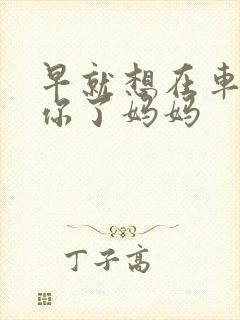 早就想在車
你了妈妈
丁子高